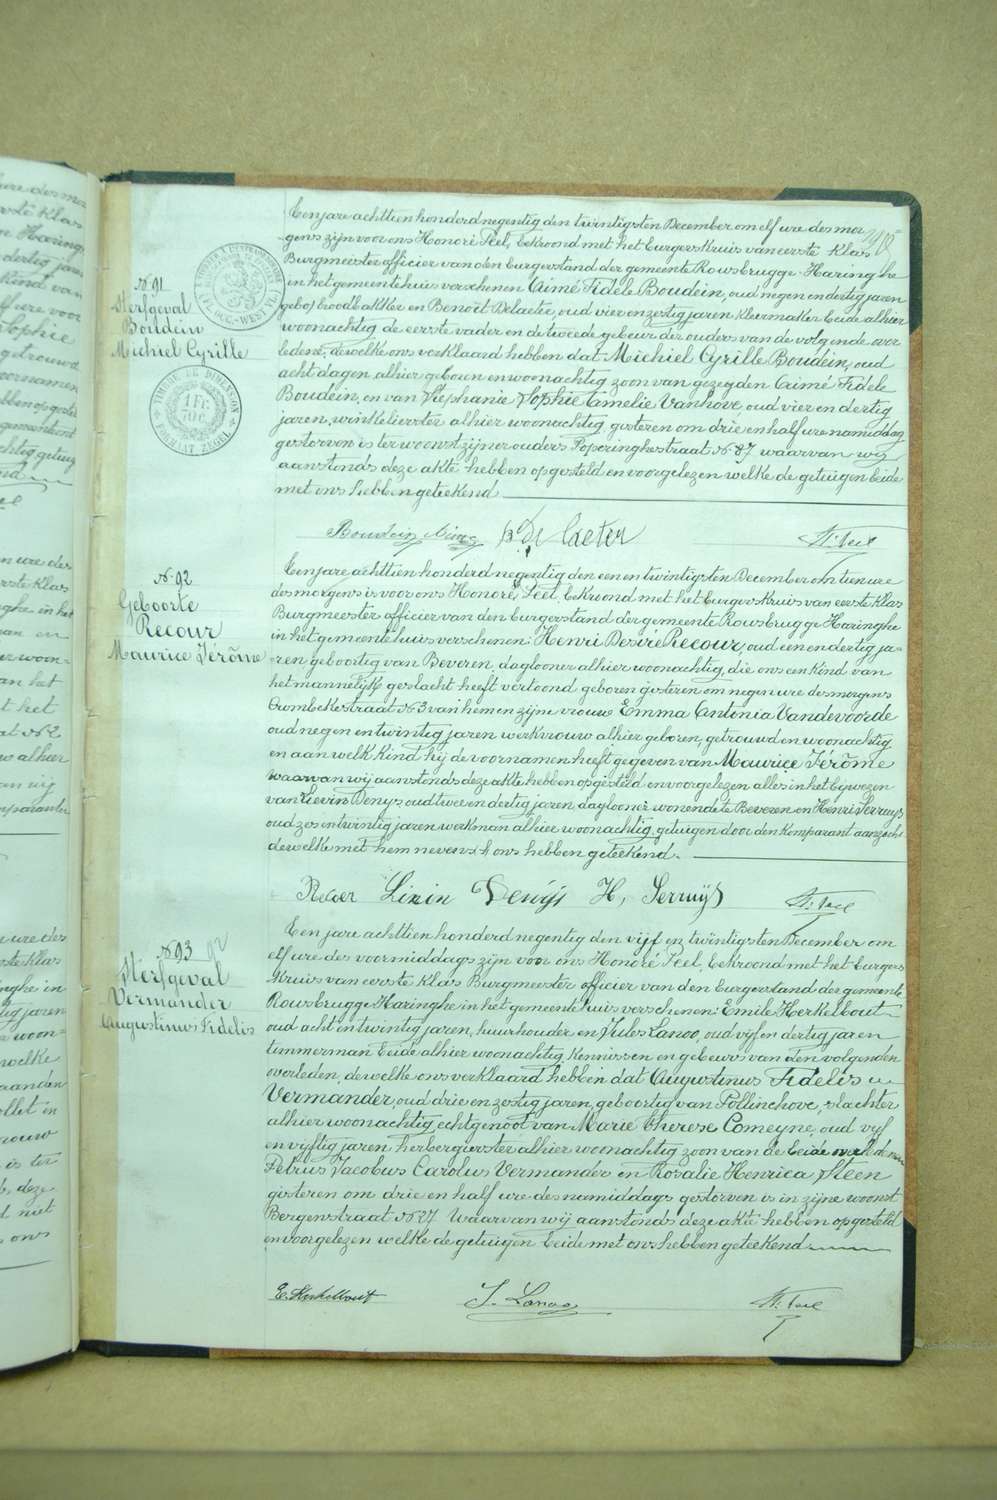 N. 91
Sterfgeval
Boudein
Michiel Cyrille
TIMBRE DE DIMENSION
1 FR.
70 C.
FORMAAT ZEGEL
Een jare achttien honderd negentig den twintigsten December om elf ure des mor-
gens zijn voor ons Honoré Feel, bekroond met het Burgerskruis van eerste Klas
Burgmeester officier van den burgerstand der gemeente Rousbrugge-Haringhe
in het gemeentehuis verschenen Aimé Fidele Boudein, oud negen en dertig jaren
broodbakker en Benoit Delaeter, oud vier en zestig jaren kleermaker beide alhier
woonachtig de eerste vader en de tweede gebuer der ouders van de volgende over
ledene, dewelke ons verklaard hebben dat Michiel Cyrille Boudein, oud
acht dagen alhier geboren en woonachtig zoon van gezegden Aimé Fidele
Boudein, en van Stephanie Sophie Amelie Vanhove, oud vier en dertig
jaren, winkelierster alhier woonachtig gisteren om drie en half ure namiddag
gestorven is ter woonst zijner ouders Poperinghestraat N. 87 waarvan wij
aanstonds deze akte hebben opgesteld en voorgelezen welke de getuigen beide
met ons hebben geteekend
Boudein Aimé B. De Laeter H. Feel
N. 92
Geboorte
Recour
Maurice Jérôme
Een jare achttien honderd negentig den een en twintigsten December om tien ure
des morgens is voor ons Honoré Feel, bekroond met het Burgerskruis van eerste Klas
Burgmeester officier van den burgerstand der gemeente Rousbrugge Haringhe
in het gemeentehuis verschenen: Henri Desiré Recour, oud een en dertig ja-
ren, geboortig van Beveren, daglooner alhier woonachtig, die ons een kind van
het mannelijk geslacht heeft vertoond geboren gisteren om negen ure des morgens
Crombekestraat N. 3 van hem en zijne vrouw Emma Antonia Vandevoorde
oud negen en twintig jaren werkvrouw alhier geboren, getrouwd en woonachtig
en aan welk kind hij de voornamen heeft gegeven van Maurice Jérôme
waarvan wij aanstonds deze akte hebben opgesteld en voorgelezen alles in het bijwezen
van Lievin Denys oud twee en dertig jaren daglooner wonende te Beveren en Henri Serruys
oud zes en twintig jaren werkman alhier woonachtig, getuigen door den komparant aanzocht
dewelke met hem nevens ons hebben geteekend.
Recoer Livin Denijs H, Serruijs H. Feel
N. 93 92
Sterfgeval
Vermander
Augustinus Fidelis
Een jare achttien honderd negentig den vijf en twintigsten December om
elf ure des voormiddags zijn voor ons Honoré Feel, bekroond met het Burgers
kruis van eerste Klas Burgmeester officier van den burgerstand der gemeente
Rousbrugge Haringhe in het gemeentehuis verschenen: Emile Herkelbout
oud acht en twintig jaren, huurhouder en Jules Lanoo, oud vijf en dertig jaren
timmerman beide alhier woonachtig kennissen en gebeurs van den volgenden
overleden, dewelke ons verklaard hebben dat Augustinus Fidelis
Vermander, oud drie en zestig jaren, geboortig van Pollinchove, slachter
alhier woonachtig echtgenoot van Marie Therese Comeyne, oud vijf
en vijftig jaren herbergierster alhier woonachtig zoon van de beide overledenen
Petrus Jacobus Carolus Vermander en Rosalie Henrica Steen
gisteren om drie en half ure des namiddags gestorven is in zijne woonst
Bergenstraat N. 27 Waarvan wij aanstonds deze akte hebben opgesteld
en voorgelezen welke de getuigen beide met ons hebben geteekend
E. Herkelbout J. Lanoo H. Feel